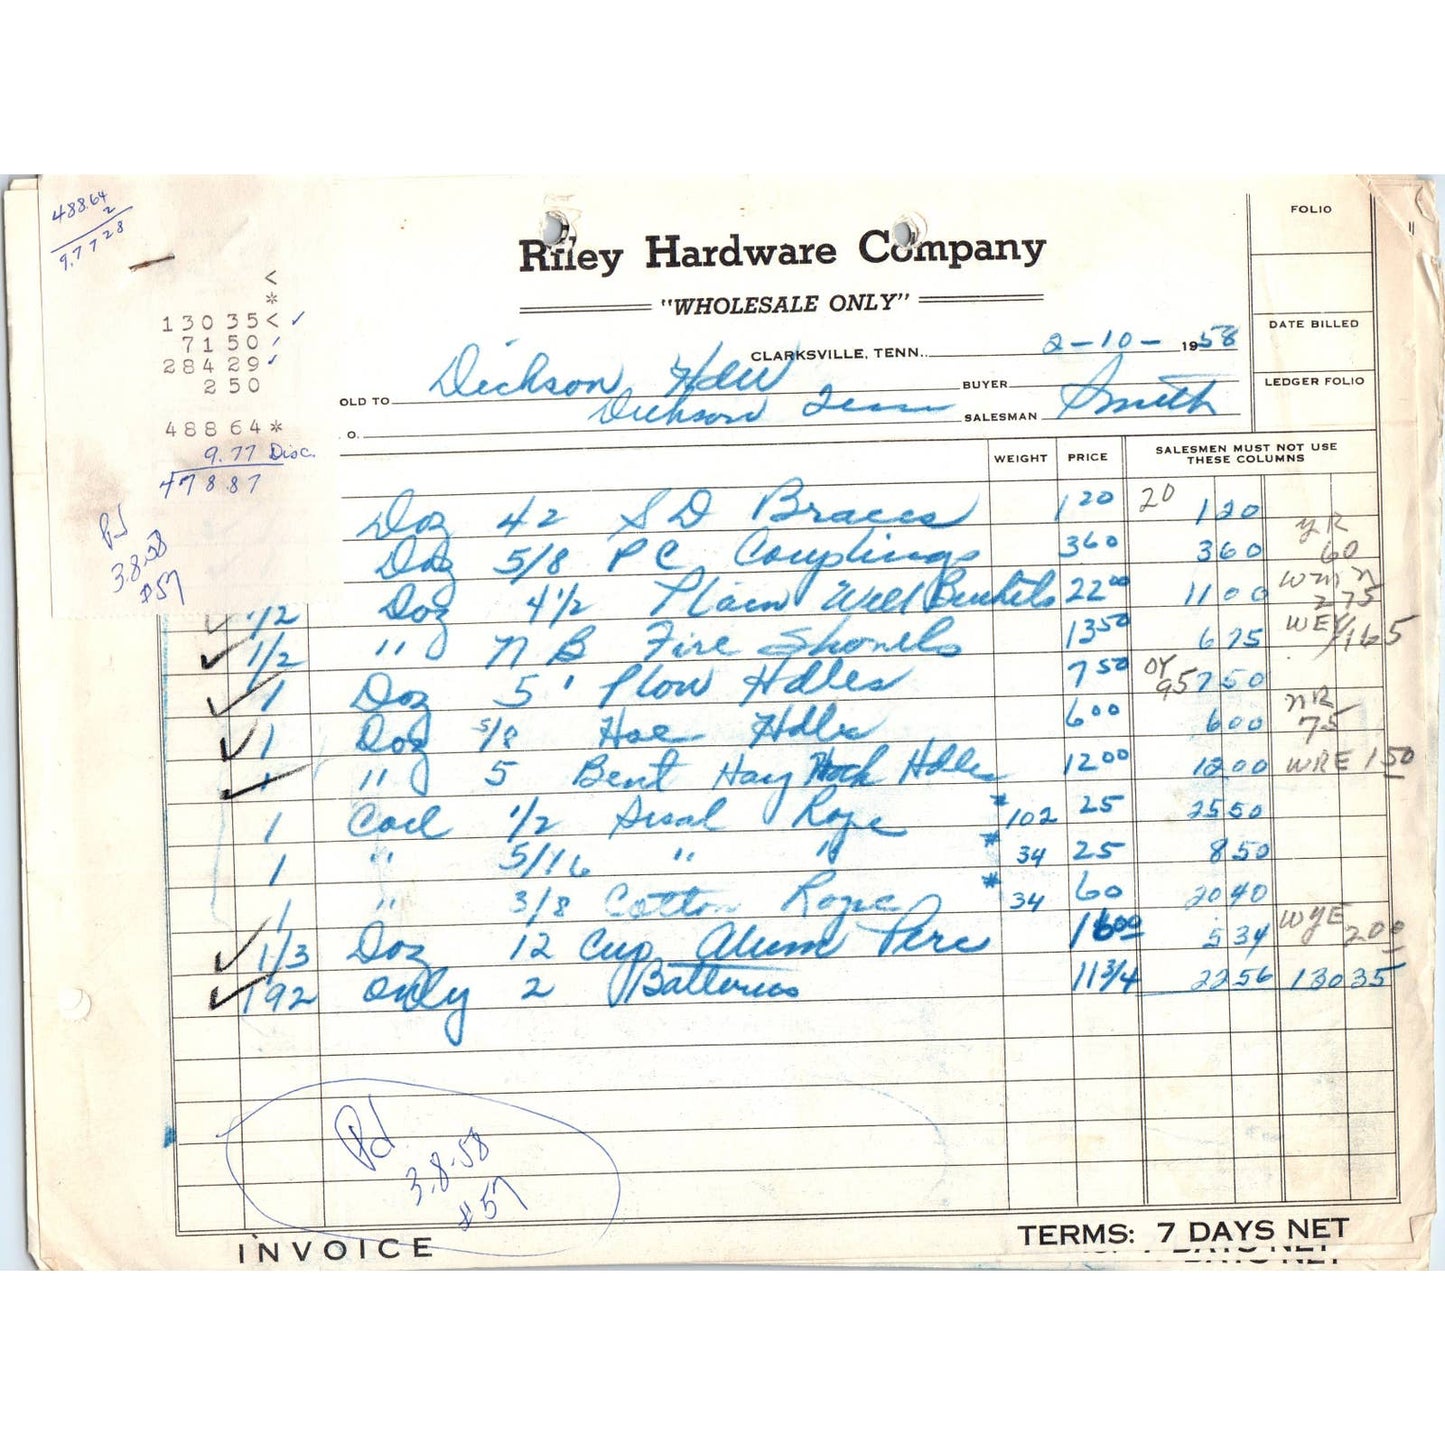 488.64
2
9.7728
<
*
13035<
7150
28429
250
48864*
9.77 Disc.
478.87
Pd
3.8.58
#57
Riley Hardware Company
"WHOLESALE ONLY"
FOLIO
DATE BILLED
LEDGER FOLIO
CLARKSVILLE, TENN. 2-10- 1958
OLD TO Dickson Hdw BUYER
O. Dickson Tenn SALESMAN Smith
WEIGHT PRICE SALESMEN MUST NOT USE THESE COLUMNS
Doz 42 SD Braces 120 20 120
Doz 5/8 PC Couplings 360 360 YR 60
1/2 Doz 4 1/2 Plain Well Buckets 2200 1100 275
1/2 " NB Fire Shovels 1350 675 WEY 165
1 Doz 5' Plow Hdles 750 OY 95 750
1 Doz 5/8 Hoe Hdles 600 600 NR 75
1 " 5 Bent Hay Hook Hdles 1200 1200 WRE 150
1 Coil 1/2 Sisal Rope #102 25 2550
1 " 5/16 " " #34 25 850
1 " 3/8 Cotton Rope #34 60 2040
1/3 Doz 12 Cup Alum Perc 1600 534 WYE 200
192 only 2 Batteries 11 3/4 2256 13035
Pd
3.8.58
#57
INVOICE TERMS: 7 DAYS NET